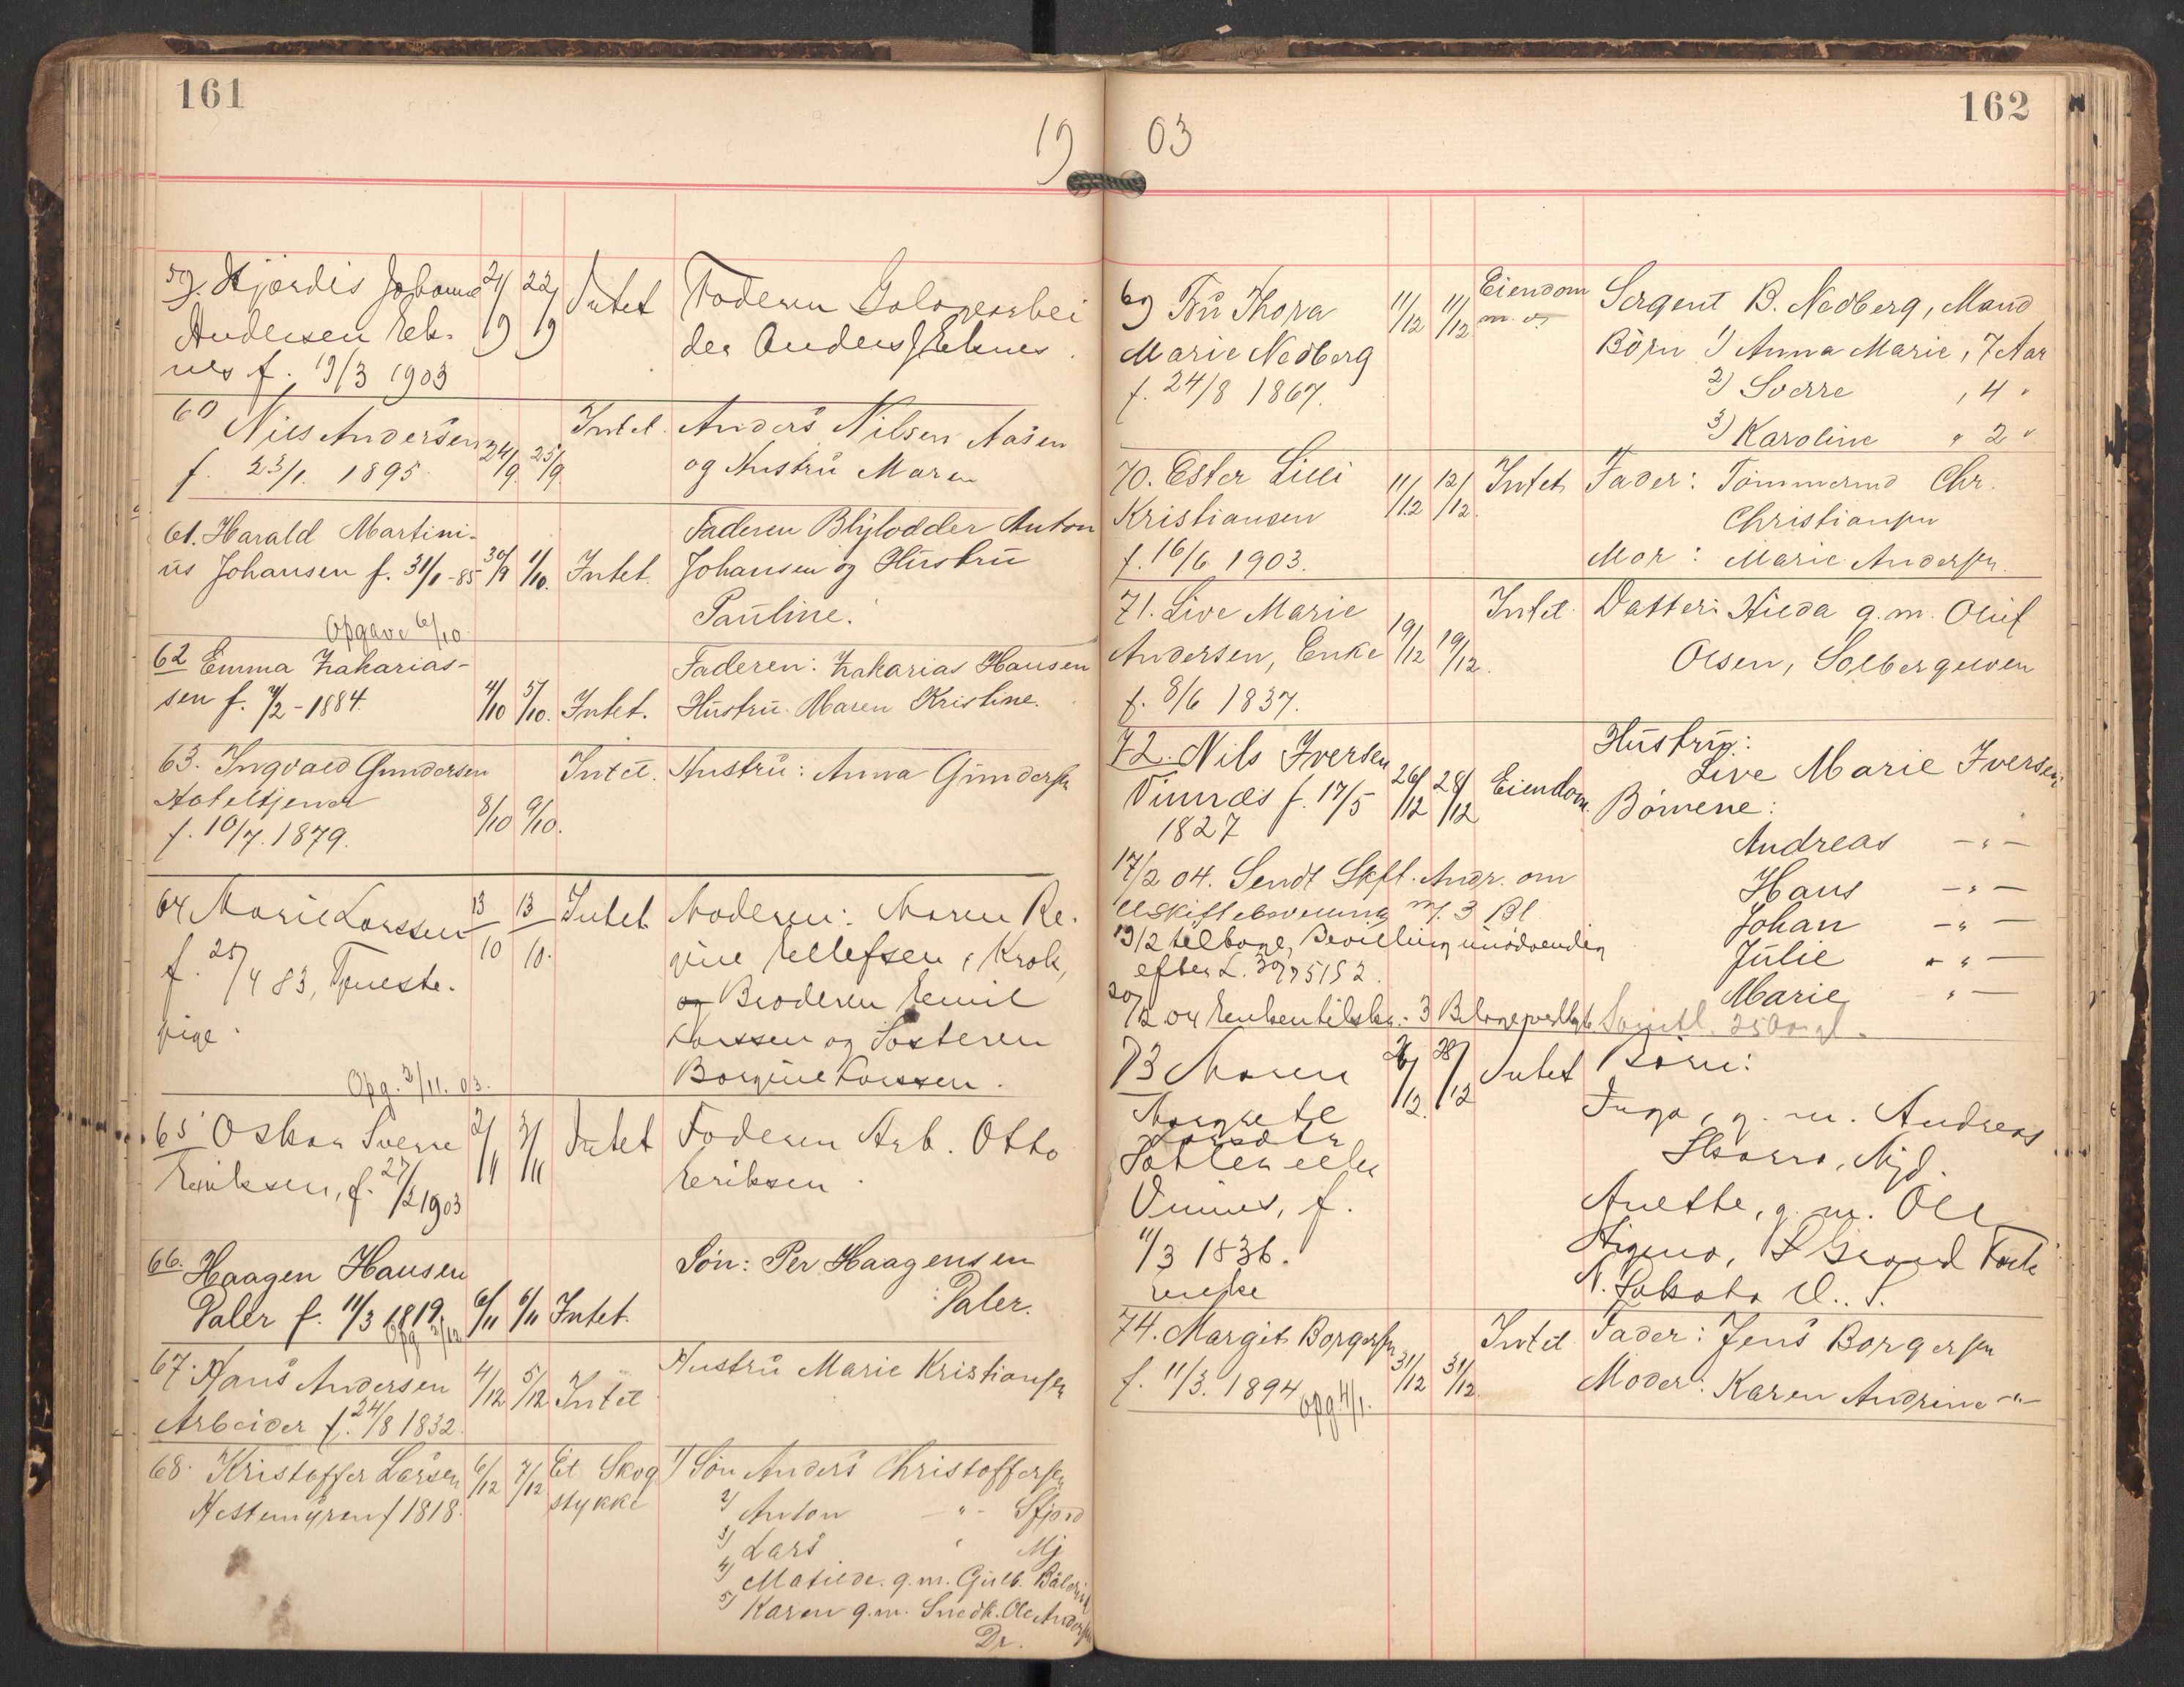 161
19
59. Hjørdis Johanne 21/9 22/9 Intet Faderen Galoparbei
Andersen Ek- der Anders J Eknes.
nes f. 19/3 1903
60 Nils Andersen 24/9 25/9 Intet. Anders Nilsen Aasen
f. 23/1. 1895. og Hustru Maren
61. Harald Martini- Faderen Blylodder Anton
us Johansen f. 31/1-85 30/9 1/10. Intet. Johansen og Hustru
Pauline.
Opgave 6/10.
62 Emma Zakarias- Faderen: Zakarias Hansen
sen f. 4/2-1884. 4/10 5/10. Intet. Hustru Maren Kristine.
63. Ingvald Gundersen Intet. Hustru: Anna Gundersen
Hoteltjener 8/10 9/10.
f. 10/7. 1879.
64 Marie Larssen 13/10 13/10. Intet Moderen: Maren Re-
f. 25/4 83, Tjeneste- gine Ellefsen, Krok,
pige. og Broderen Emil
Larssen og Søsteren
Borgine Larssen.
Opg. 3/11. 03.
65 Oskar Sverre 2/11 3/11 Intet Faderen Arb. Otto
Eriksen, f. 27/2 1903 Eriksen.
66. Haagen Hansen Søn: Per Haagensen
Paler f. 11/3 1819. 6/11 6/11 Intet. Paler.
Opg 3/12
67. Hans Andersen 4/12 5/12 Intet Hustru Marie Kristiansen
Arbeider f. 24/8 1832.
68. Kristoffer Larsen 6/12 7/12 Et Skog 1) Søn Anders Christoffersen
Hestemyren f 1818. stykke 2) Anton -"- Sfjord
3) Lars " Mj
4) Matilde. g.m. Gulb.
5) Karen g.m. Snedk. Ole Andersen
Dr.
162
03
69 Fru Thora 11/12 11/12 Eiendom Sergent B. Nedberg, Mand
Marie Nedberg m. v. Børn 1) Anna Marie, 7 Aar
f. 24/8 1867. 2) Sverre , 4 "
3) Karoline " 2 "
70. Ester Lilli 11/12 12/12 Intet Fader: Tømmermd Chr.
Kristiansen Christiansen
f. 16/6 1903. Mor: Marie Andersen.
71. Live Marie Intet. Datter: Hilda g.m. Oluf
Andersen, Enke 19/12 19/12. Olsen, Solbergelven
f. 8/6 1837.
72. Nils Iversen Hustru:
Vinnæs f. 17/5 26/12 28/12 Eiendom. Live Marie Iversen
1827 Børnene:
Andreas -"-
17/2 04. Sendt Skft. Andr. om Hans -"-
m/. 3 Bl. Johan -"-
19/2 tilbage, Bevilling unødvendig Julie -"-
efter L. 30/7 51 § 2. Marie "-
20/2 04 Enken tilsk. 3 Bilage vedlagt
73 Maren 26/12. 28/12 Intet Børn:
Margrete Inga, g. m. Andreas
Larsdtr Skarra, Njd.
eller Anette, g. m. Ole
Vinnes, f.
11/3 1836. Grand
Enke N. Dakota U. S.
74. Margit Borgersen 31/12 31/12. Intet. Fader: Jens Borgersen
f. 11/3. 1894 Opg 4/1. Moder: Karen Andrine -"-